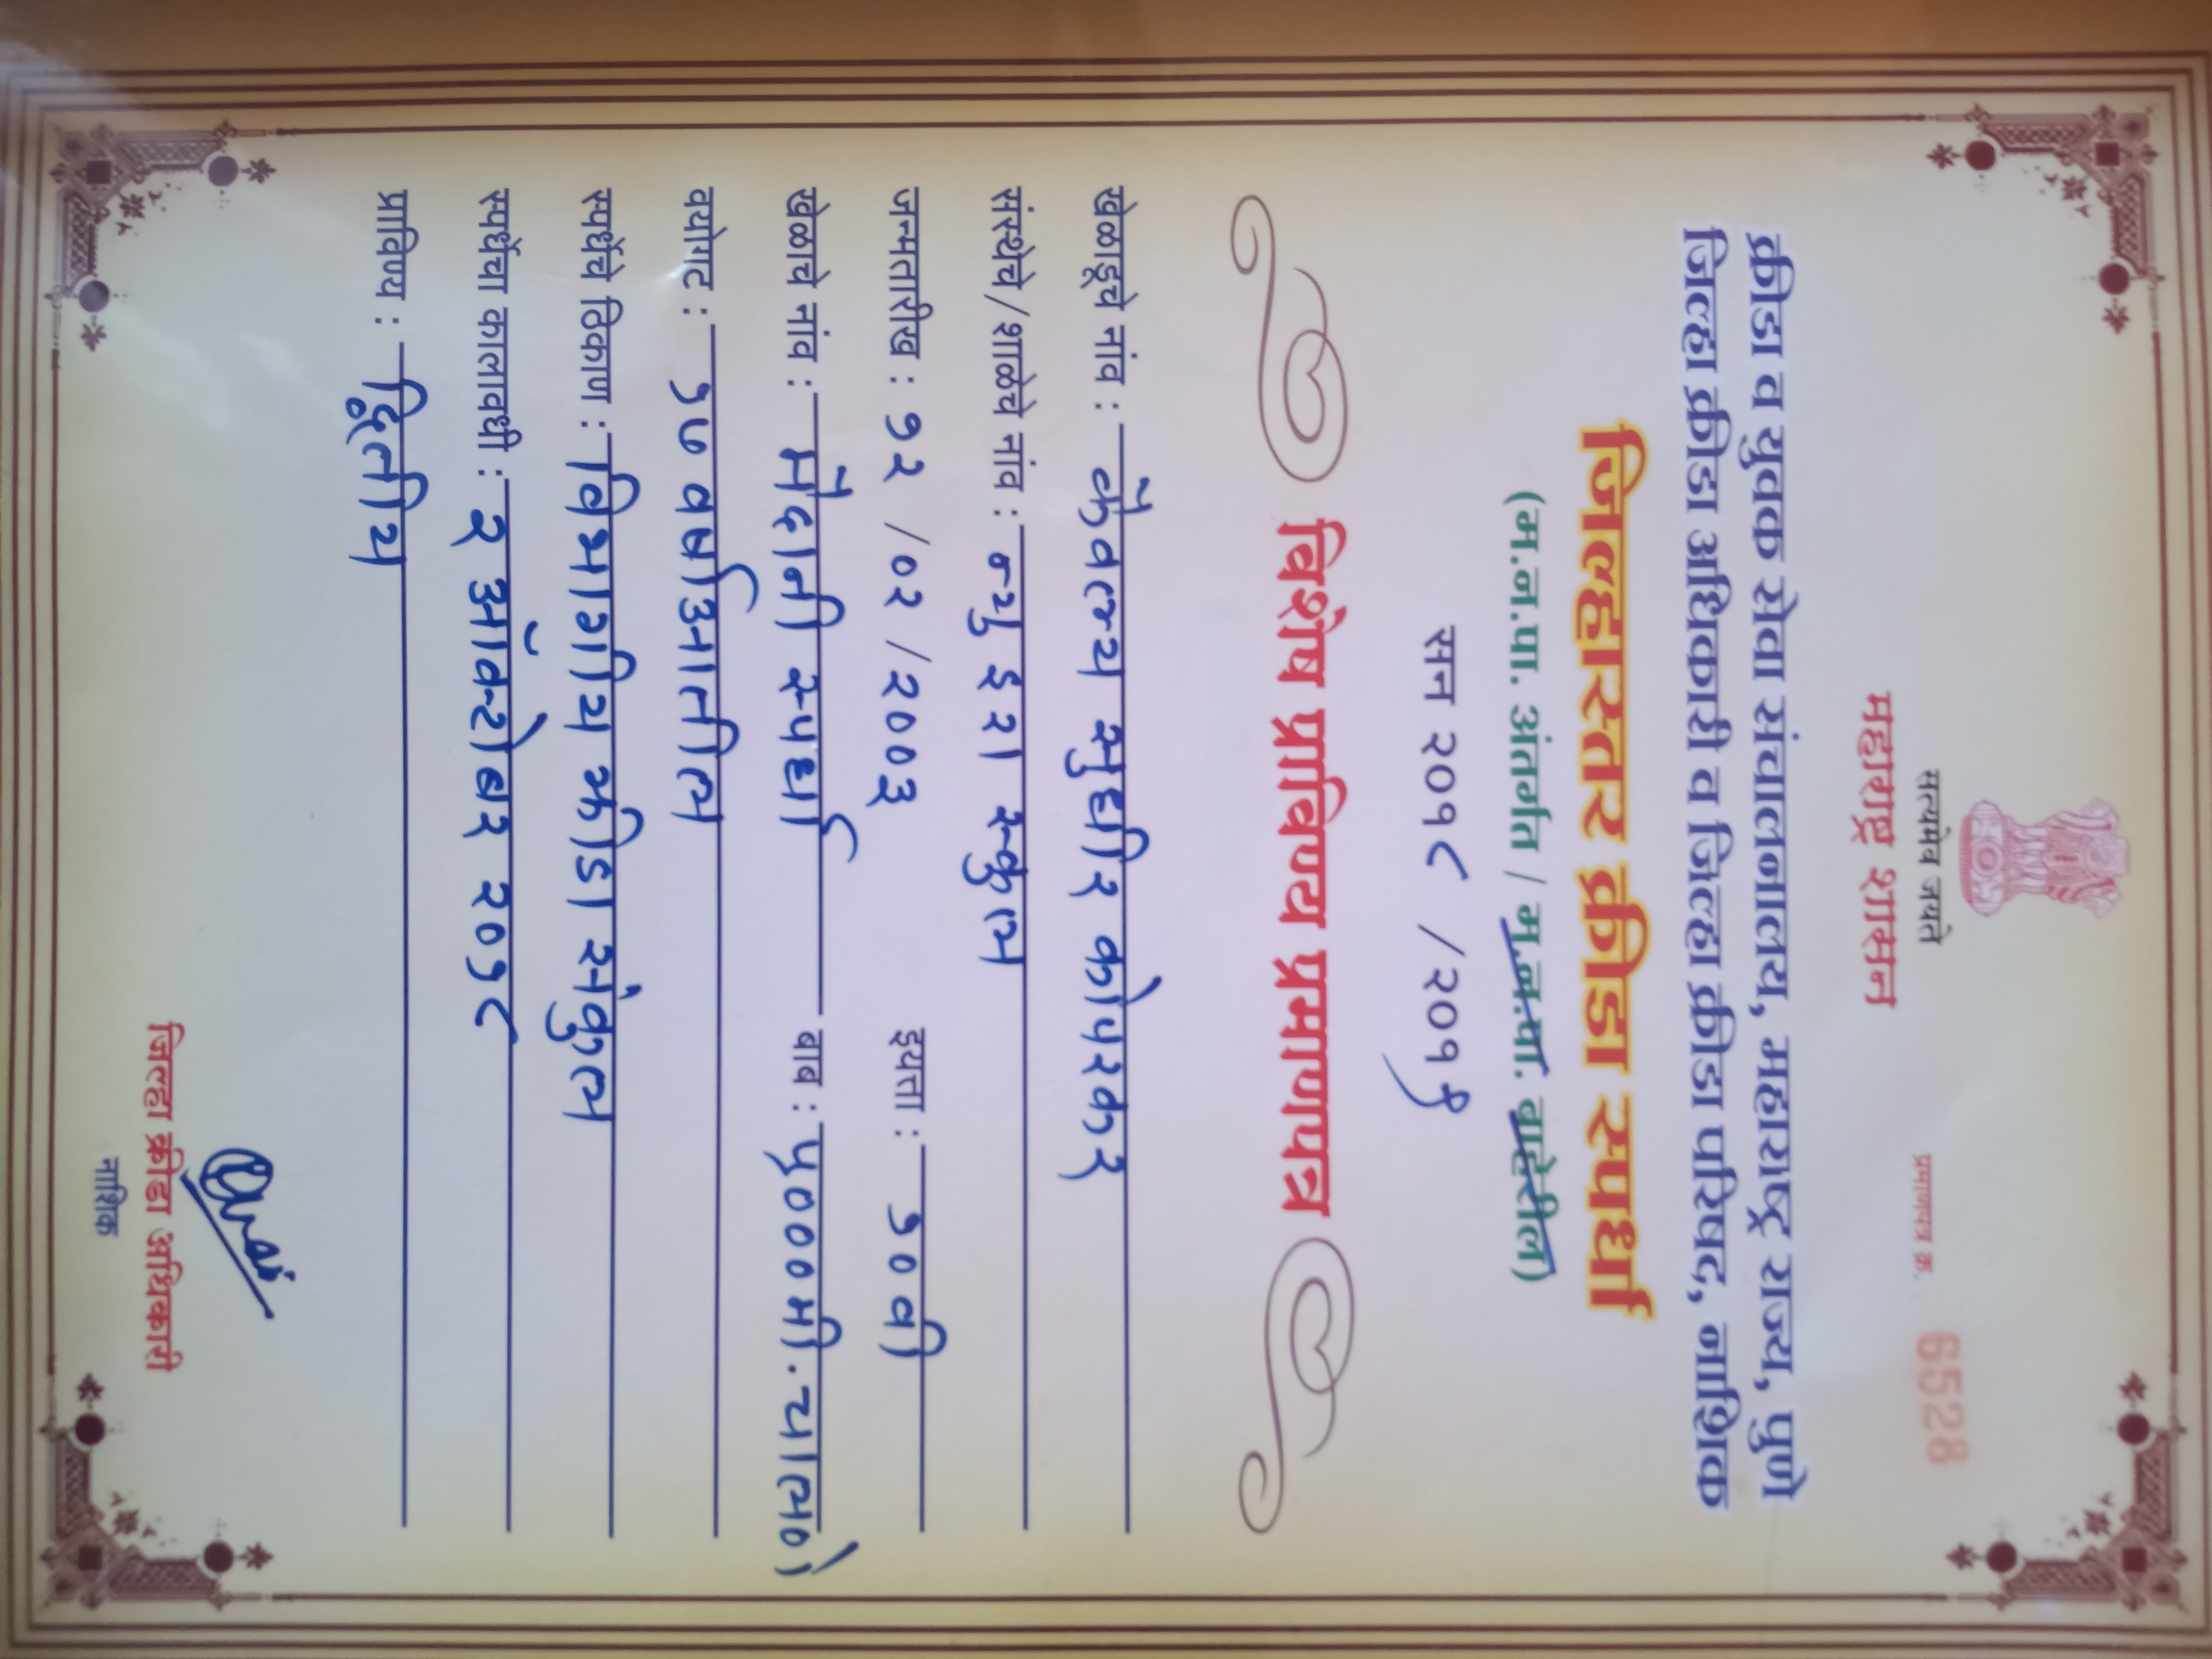 सत्यमेव जयते
प्रमाणपत्र क्र. 6528
महाराष्ट्र शासन
क्रीडा व युवक सेवा संचालनालय, महाराष्ट्र राज्य, पुणे
जिल्हा क्रीडा अधिकारी व जिल्हा क्रीडा परिषद, नाशिक
जिल्हास्तर क्रीडा स्पर्धा
(म.न.पा. अंतर्गत / म.न.पा. बाहेरील)
सन २०१८ /२०१९
विशेष प्राविण्य प्रमाणपत्र
खेळाडूचे नांव : कैवल्य सुधीर कोपरकर
संस्थेचे/शाळेचे नांव : न्यु इरा स्कुल
जन्मतारीख : १२ /०२ /२००३ इयत्ता : १० वी
खेळाचे नांव : मैदानी स्पर्धा बाब : ५००० मी. चालणे
वयोगट : १७ वर्षाआतील
स्पर्धेचे ठिकाण : विभागीय क्रीडा संकुल
स्पर्धेचा कालावधी : २ ऑक्टोबर २०१८
प्राविण्य : द्वितीय
जिल्हा क्रीडा अधिकारी
नाशिक